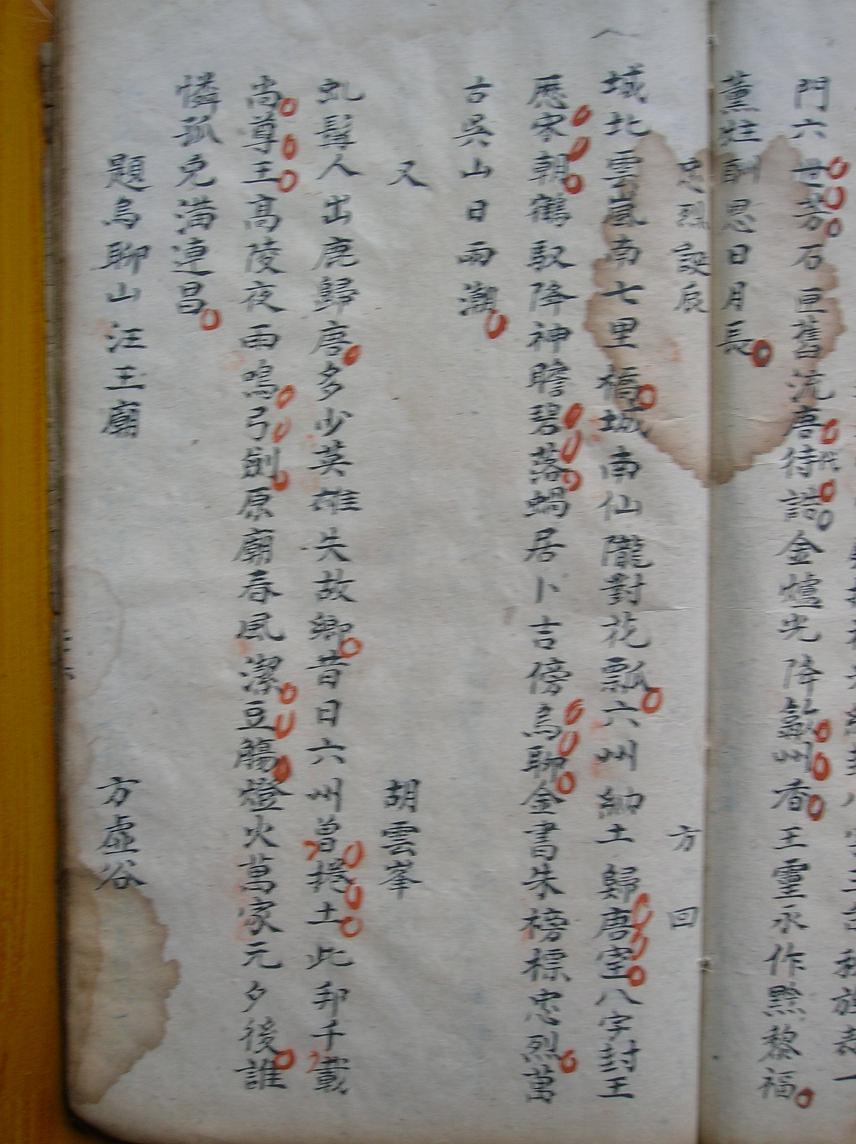 門六世芳石亘舊流唐代待誥金爐光降歙州香王靈永作黟黎福
薰炷酬恩日月長
忠烈誕辰 方回
城北雲嵐南七里橋城南仙隴對花瓢六州納土歸唐室八字封王
歷宋朝鶴馭降神瞻碧落蝸居卜吉傍烏聊金書朱榜標忠烈萬
古吳山日兩潮
又 胡雲峯
虬髯人出鹿歸唐多少英雄失故鄉昔日六州曾挈土此邦千載
尚尊王高陵夜雨鳴弓劍原廟春風潔豆觴燈火萬家元夕後誰
憐孤兔滿連昌
題烏聊山汪王廟 方虛谷